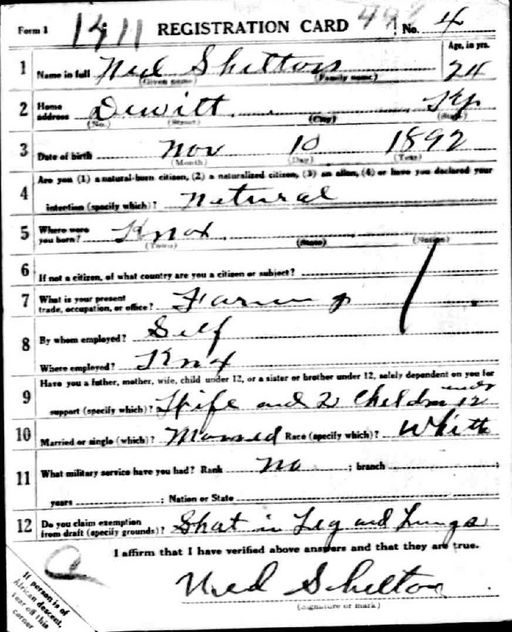 Form 1 1411 REGISTRATION CARD No. 4
Age, in yrs.
1 Name in full Ned Shelton 24
(Given name) (Family name)
2 Home address Dewitt, Ky
(No.) (Street) (City) (State)
3 Date of birth Nov 10 1892
(Month) (Day) (Year)
4 Are you (1) a natural-born citizen, (2) a naturalized citizen, (3) an alien, (4) or have you declared your
intention (specify which)? Natural
5 Where were you born? Knox
(Town) (State) (Nation)
6 If not a citizen, of what country are you a citizen or subject?
7 What is your present trade, occupation, or office? Farming
8 By whom employed? Self
Where employed? Knox
9 Have you a father, mother, wife, child under 12, or a sister or brother under 12, solely dependent on you for
support (specify which)? Wife and 2 Children under 12
10 Married or single (which)? Married Race (specify which)? White
11 What military service have you had? Rank no ; branch ;
years ; Nation or State
12 Do you claim exemption from draft (specify grounds)? Shot in Leg and Lungs
I affirm that I have verified above answers and that they are true.
Ned Schelton
(Signature or mark)
If person is of African descent, tear off this corner